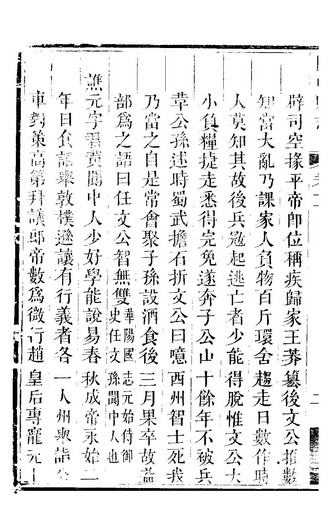 辟司空掾平帝即位稱疾歸家王莽篡後文公推數
知當大亂乃課家人負物百斤環舍趨走日數作時
人莫知其故後兵寇起逃亡者少能得脫惟文公大
小負糧捷走悉得完免遂奔子公山十餘年不被兵
革公孫述時蜀武擔石折文公曰噫西州智士死我
乃當之自是常會聚子孫設酒食後三月果卒故益
部為之語曰任文公智無雙華陽國志元始侍御史任文孫閬中人也
譙元字君黃閬中人少好學能說易春秋成帝永始二
年日食詔舉敦樸遜讓有行義者各一人州舉詣公
車對策高第拜議郎帝數為微行趙皇后專寵元上